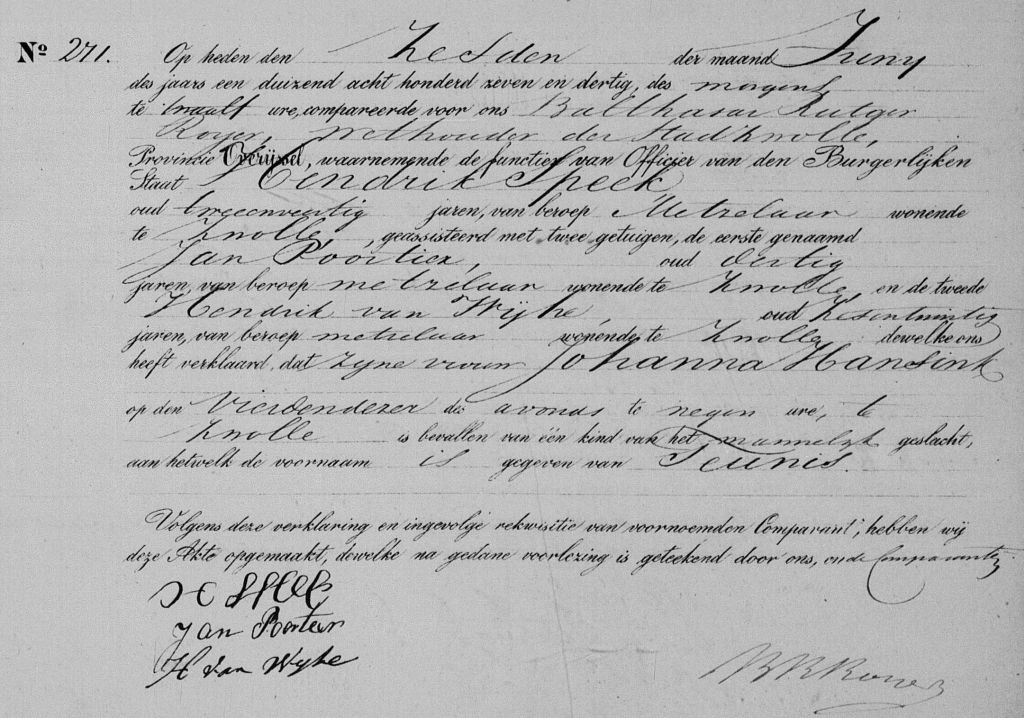 Nº 271. Op heden den Zesden der maand Juny
des jaars een duizend acht honderd zeven en dertig, des morgens
te twaalf ure, compareerde voor ons Balthasar Rutger
Royer, wethouder der Stad Zwolle,
Provincie Overijssel, waarnemende de functien van Officier van den Burgerlijken
Staat Hendrik Speek
oud tweeenveertig jaren, van beroep Metzelaar wonende
te Zwolle, geassisteerd met twee getuigen, de eerste genaamd
Jan Poortier, oud dertig
jaren, van beroep metzelaar wonende te Zwolle en de tweede
Hendrik van Wijhe, oud Zesentwintig
jaren, van beroep metzelaar wonende te Zwolle dewelke ons
heeft verklaard, dat zyne vrouw Johanna Hansink
op den Vierden dezer des avonds te negen ure, te
Zwolle is bevallen van één kind van het mannelyk geslacht,
aan hetwelk de voornaam is gegeven van Teunis.
Volgens deze verklaring en ingevolge rekwisitie van voornoemden Comparant, hebben wij
deze Akte opgemaakt, dewelke na gedane voorlezing is geteekend door ons, en de Comparanten
H
Jan Poortier
H van Wyhe